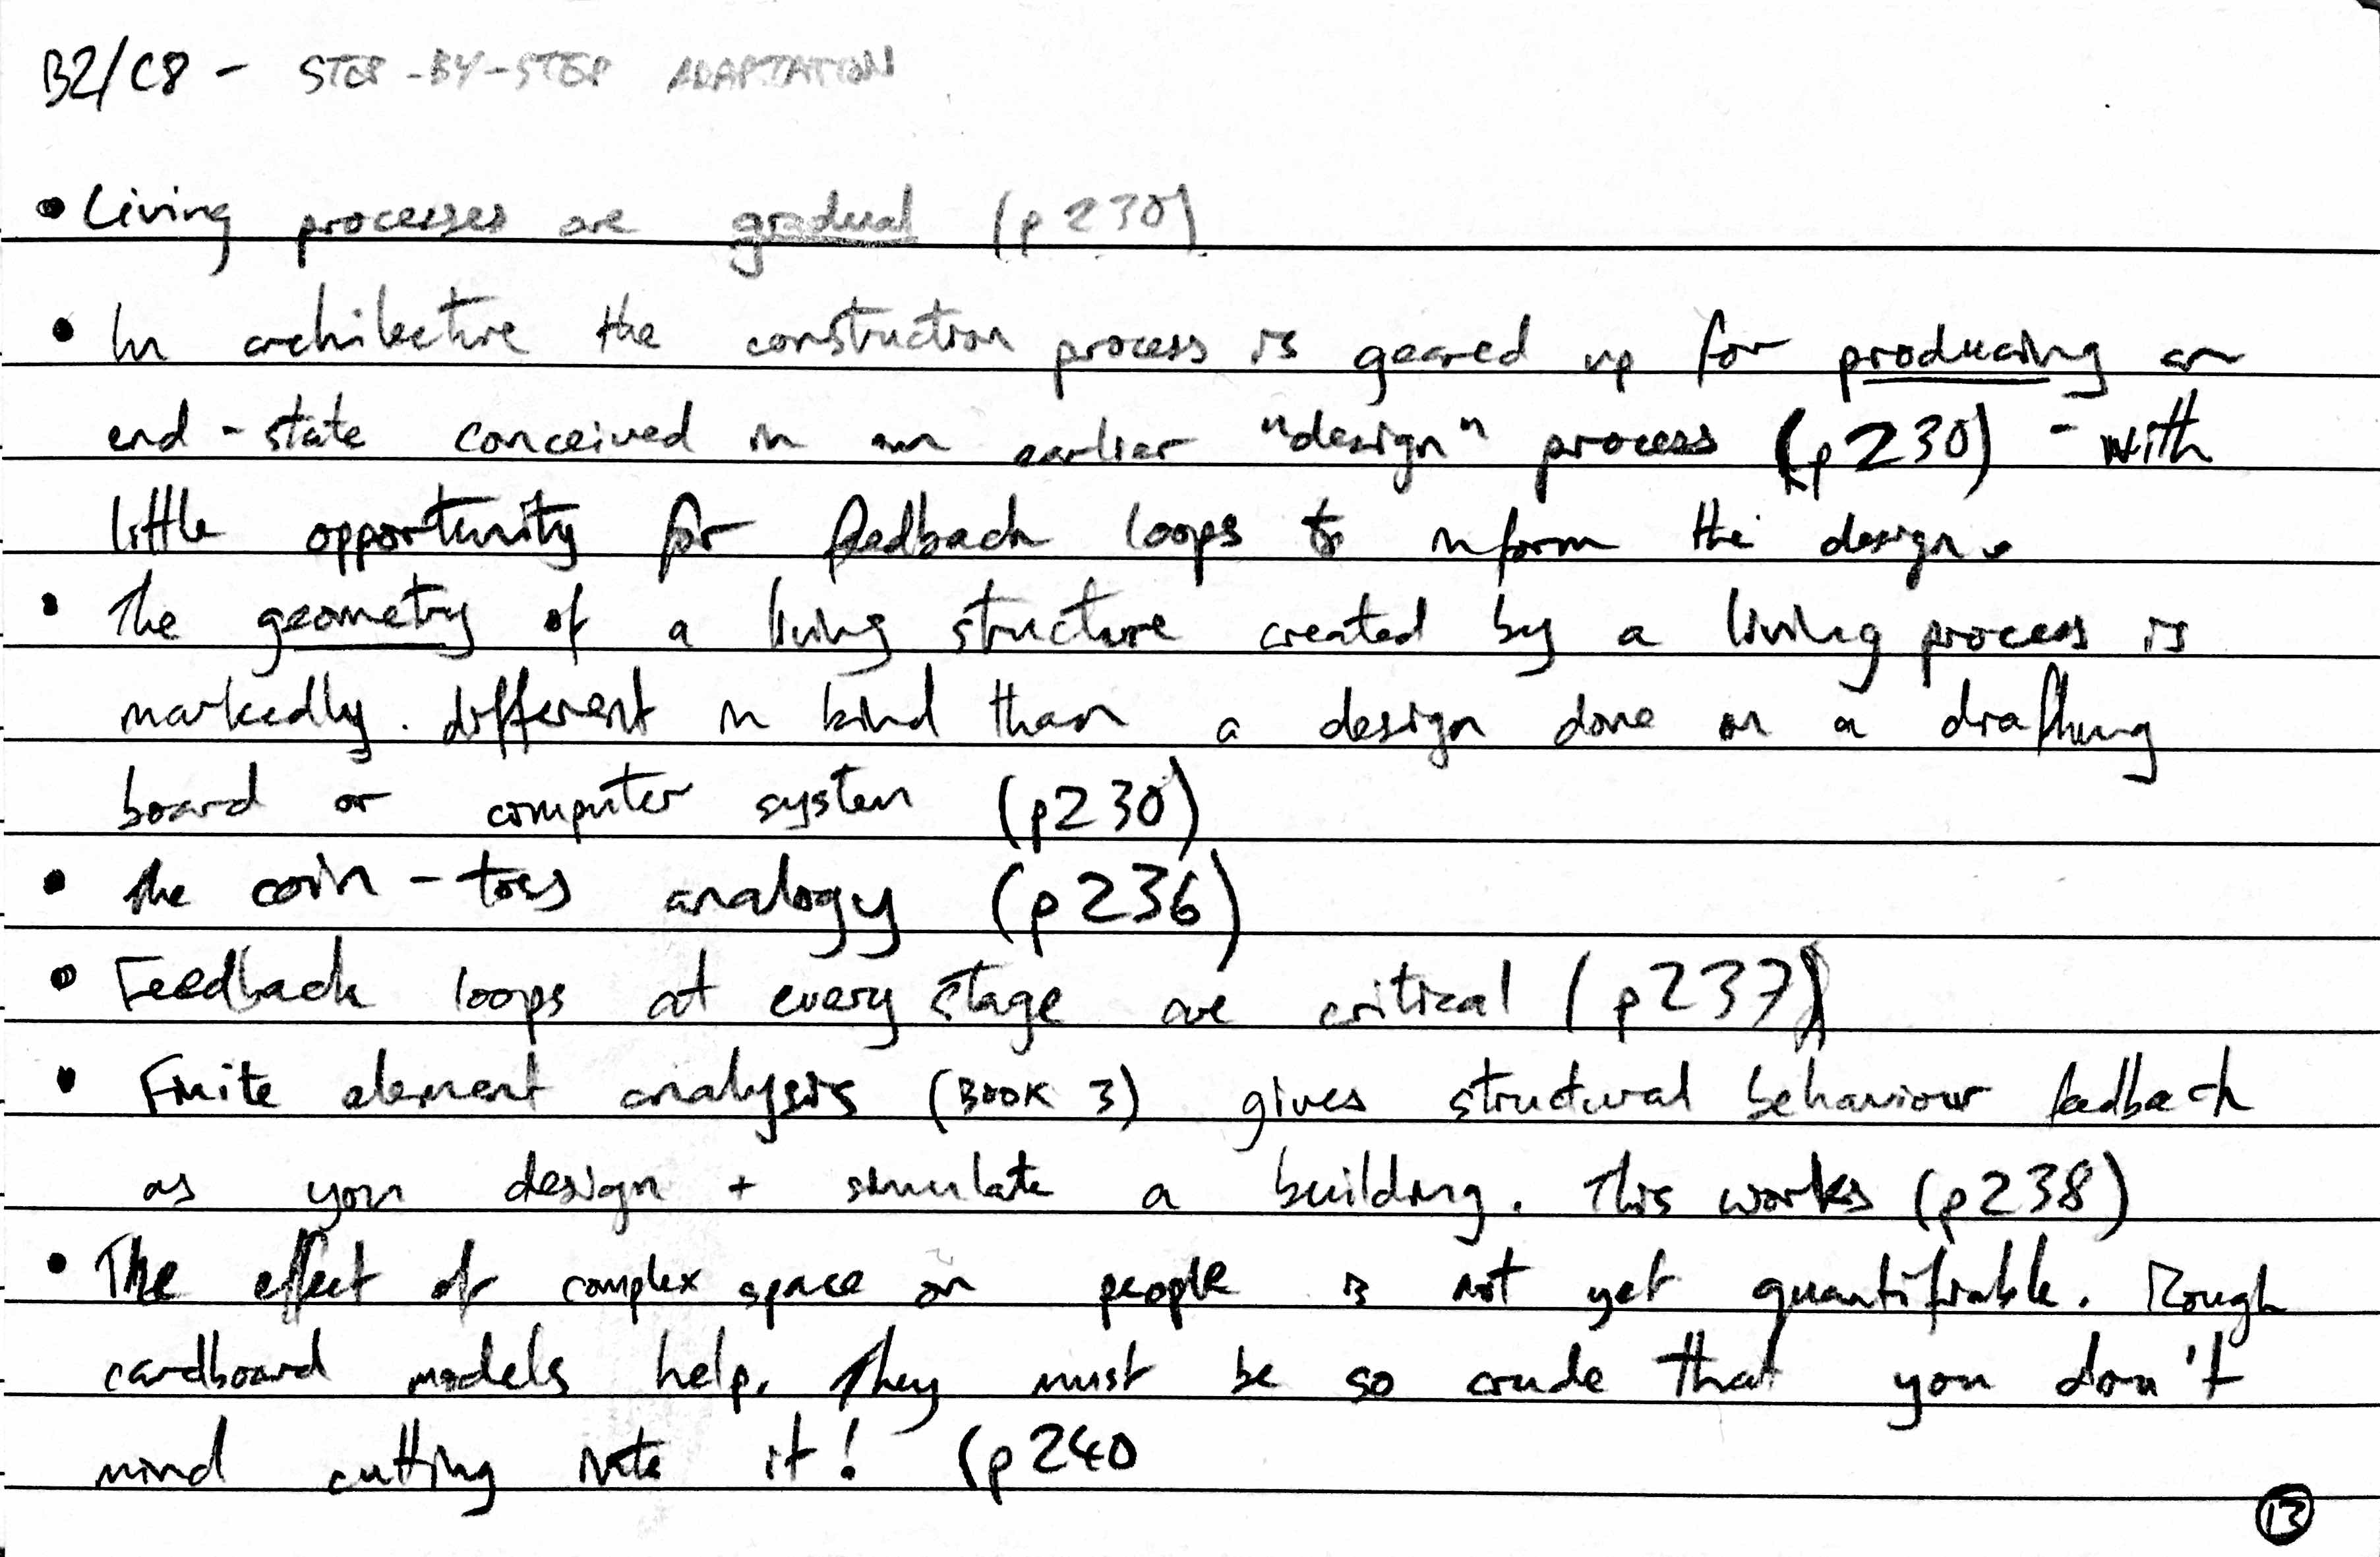 B2/C8 - STEP-BY-STEP ADAPTATION
• Living processes are gradual (p230)
• In architecture the construction process is geared up for producing an
end-state conceived in an earlier "design" process (p230) - with
little opportunity for feedback loops to inform the design.
• The geometry of a living structure created by a living process is
markedly different in kind than a design done on a drafting
board or computer system (p230)
• The coin-toss analogy (p236)
• Feedback loops at every stage are critical (p237)
• Finite element analysis (BOOK 3) gives structural behaviour feedback
as you design + simulate a building. This works (p238)
• The effect of complex space on people is not yet quantifiable. Rough
cardboard models help. They must be so crude that you don't
mind cutting into it! (p240
13